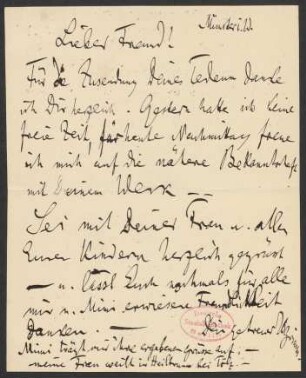 Münster i. W.
Lieber Freund!
Für die Zusendung Deines Tedeum danke
ich Dir herzlich. Gestern hatte ich keine
freie Zeit, für heute Nachmittag freue
ich mich auf die nähere Bekanntschaft
mit Deinem Werk —
Sei mit Deiner Frau u. allen
Euren Kindern herzlich gegrüsst
— u. lasst Euch nochmals für alle
mir u. Mimi erwiesene Freundlichkeit
danken. — Dein getreuer
Mimi trägt mir ihre ergebenen Grüsse auf. —
meine Frau weilt in Heilbrunn bei Tölz. —